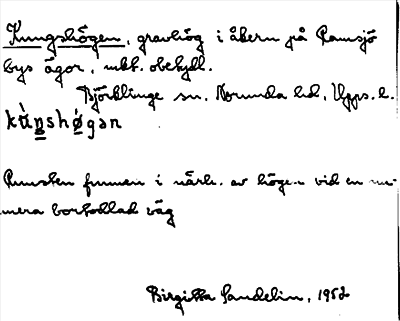 Kungshögen, gravhög i åkern på Ramsjö
bys ägor, mkt. obetydl.
Björklinge sn, Norunda hd, Upps. l.
kùŋshø̀gən
Runsten funnen i närh. av högen vid en nu-
mera bortodlad väg
Birgitta Sandelin, 1952